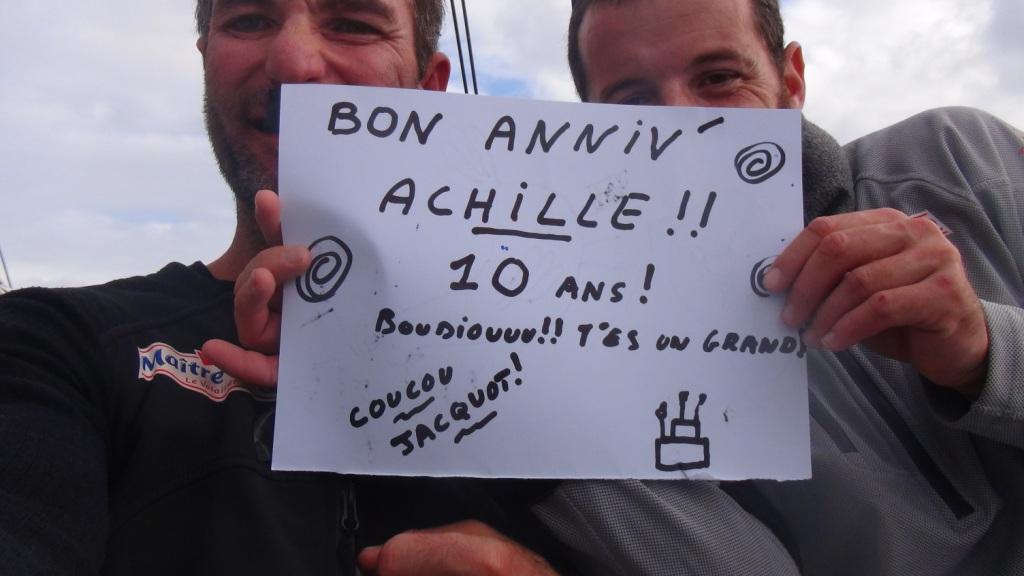 BON ANNIV'
ACHiLLE !!
10 ANS !
BOUDiOUUU!! T'ES UN GRAND
COUCOU
JACQUOT!
Maître